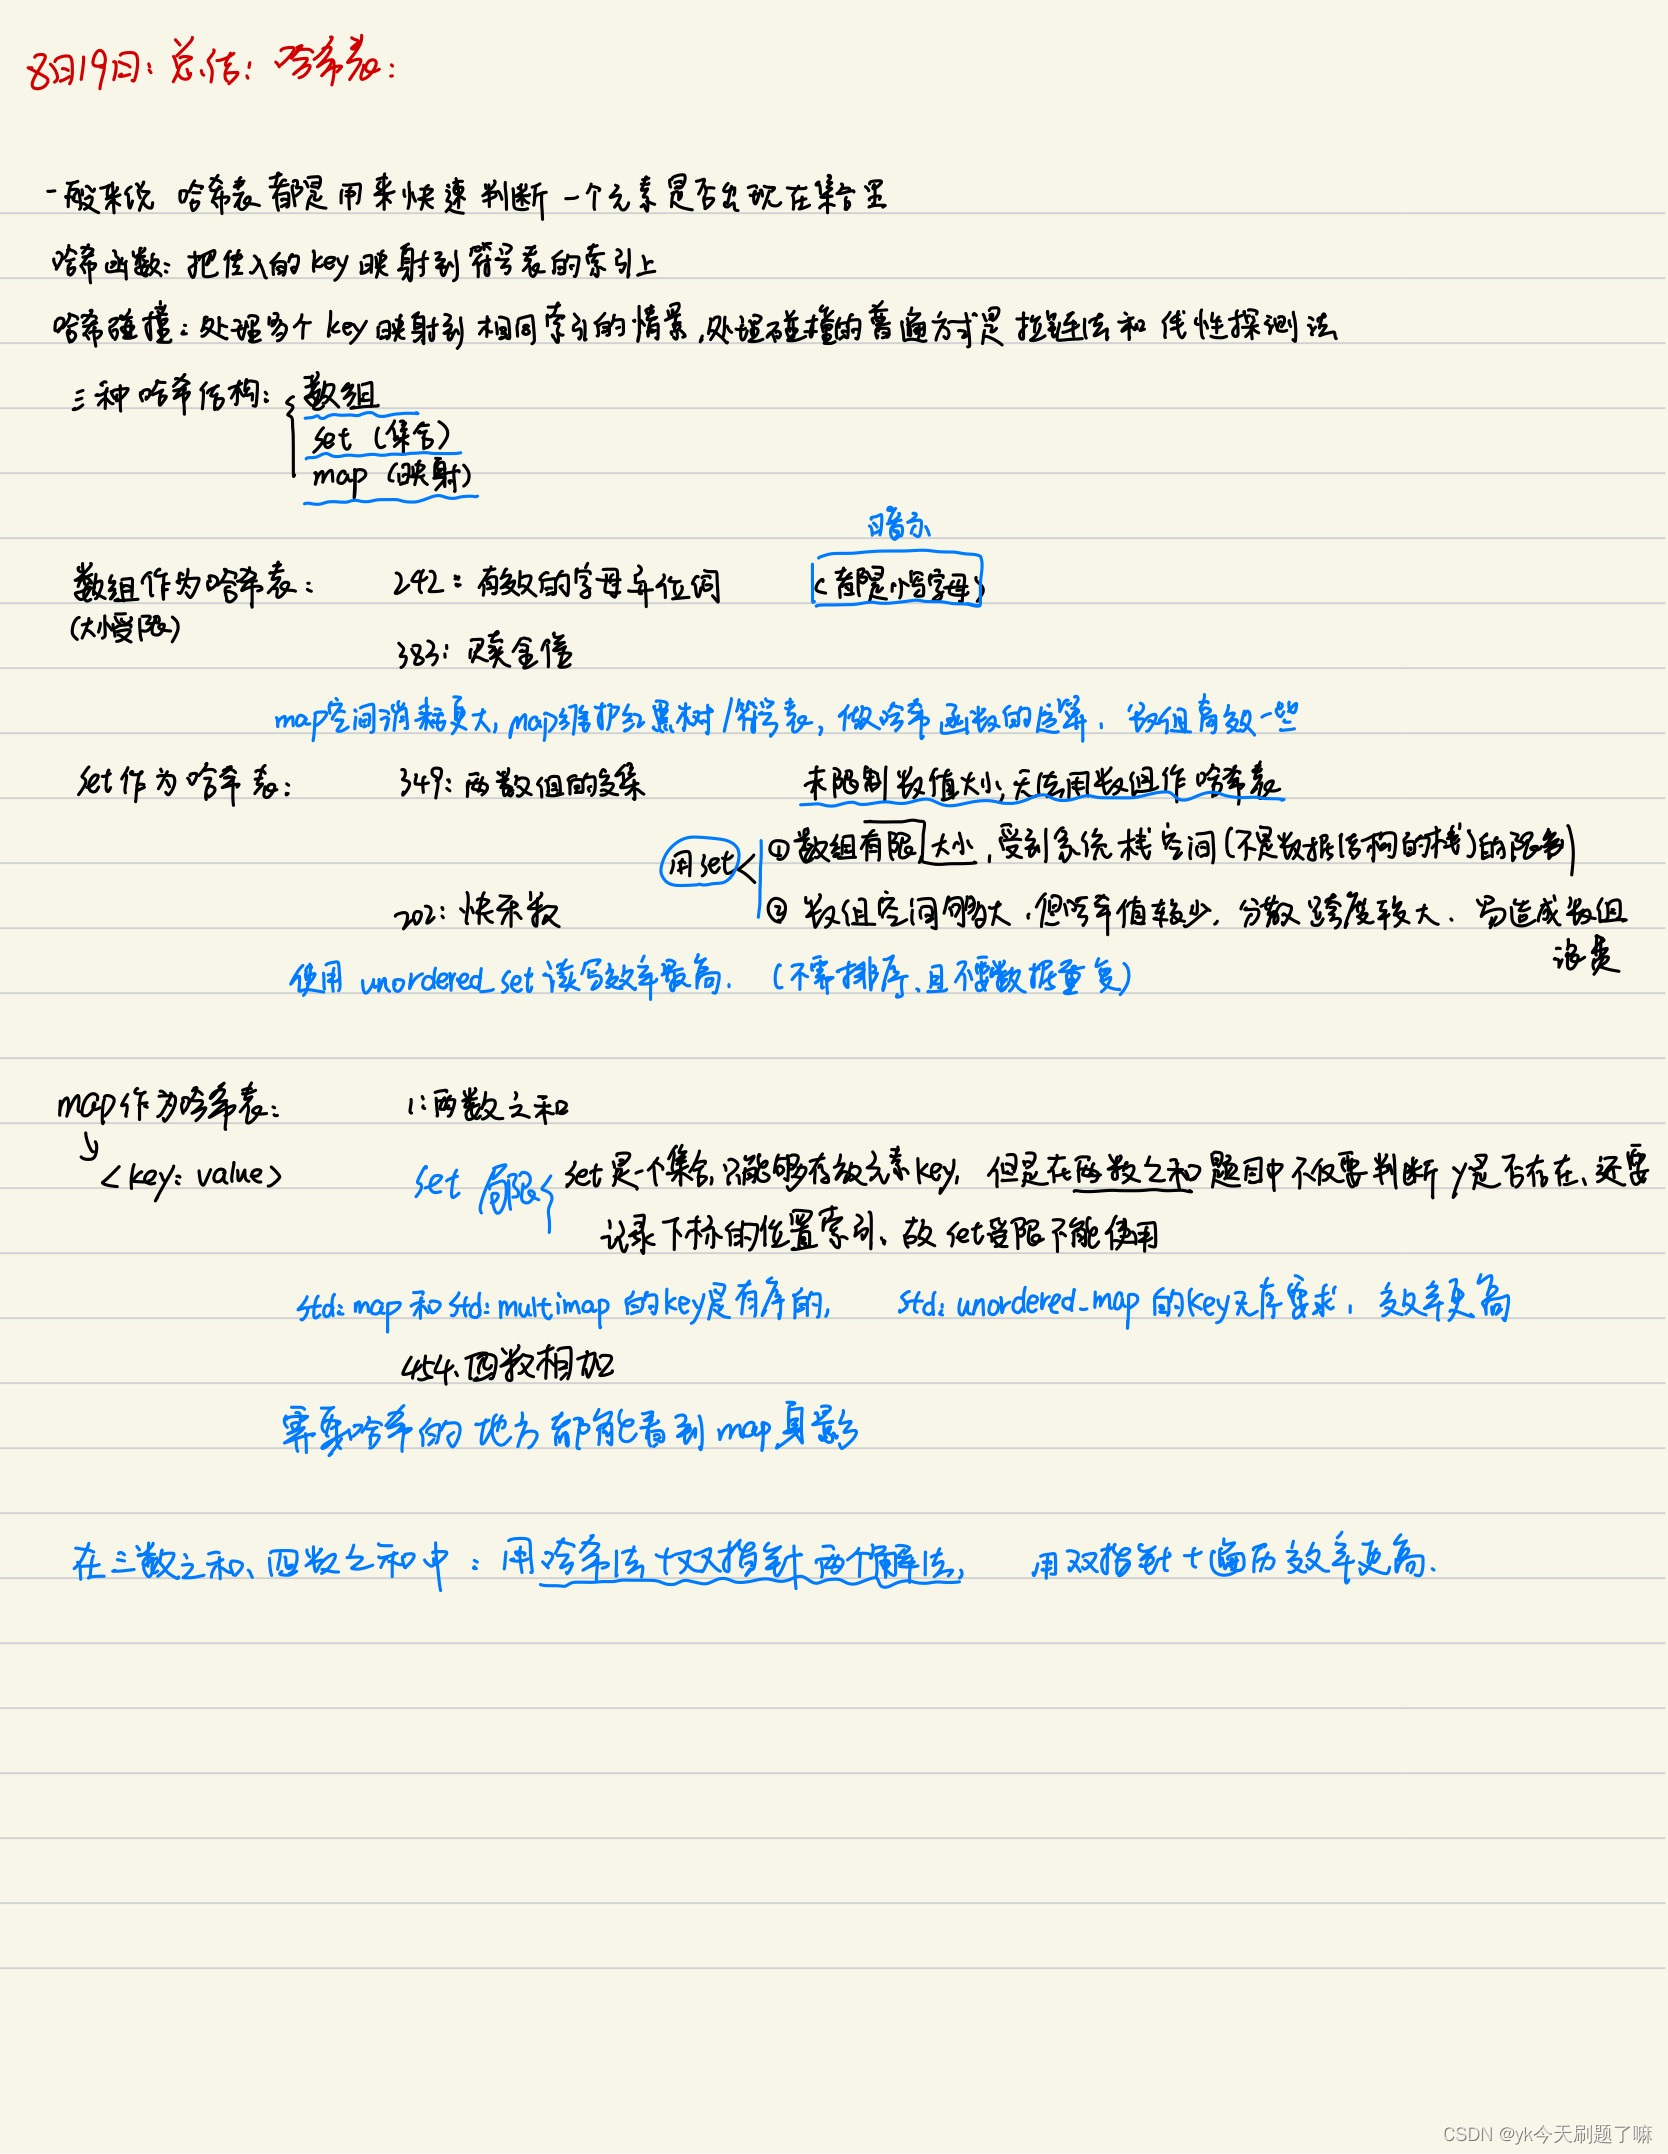 8月19日：总结：哈希表：
一般来说 哈希表都是用来快速判断一个元素是否出现在集合里
哈希函数：把传入的key映射到符号表的索引上
哈希碰撞：处理多个key映射到相同索引的情景，处理碰撞的普遍方式是拉链法和线性探测法
三种哈希结构：{数组
set（集合）
map（映射）
暗示
数组作为哈希表： 242：有效的字母异位词 （都是小写字母）
（大小受限）
383：赎金信
map空间消耗更大，map维护红黑树/符号表，做哈希函数的运算，数组有效一些
set作为哈希表： 349：两数组的交集 未限制数值大小，无法用数组作哈希表
用set< ①数组有限大小，受到系统栈空间（不是数据结构的栈）的限制
202：快乐数 ②数组空间够大，但哈希值较少，分散跨度较大，易造成数组
浪费
使用 unordered_set 读写效率最高.（不需排序，且不要数据重复）
map作为哈希表： 1：两数之和
<key：value> set 局限{ set是一个集合，只能够存放元素key，但是在两数之和题目中不仅要判断y是否存在、还要
记录下标的位置索引、故set受限不能使用
std：map和std：multimap的key是有序的， std：unordered_map的key无序要求，效率更高
454、四数相加
需要哈希的地方都能看到map身影
在三数之和、四数之和中：用哈希法+双指针两个解法， 用双指针+遍历效率更高.
CSDN @yk今天刷题了嘛